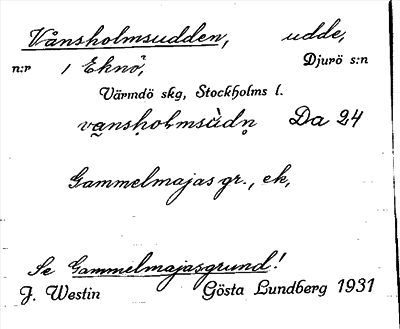 Vånsholmsudden, udde,
n:r 1 Eknö, Djurö s:n
Värmdö skg, Stockholms l.
vạnsḥoḷmsùdn̥ Da 24
Gammelmajas gr., ek,
Se Gammelmajasgrund!
J. Westin Gösta Lundberg 1931